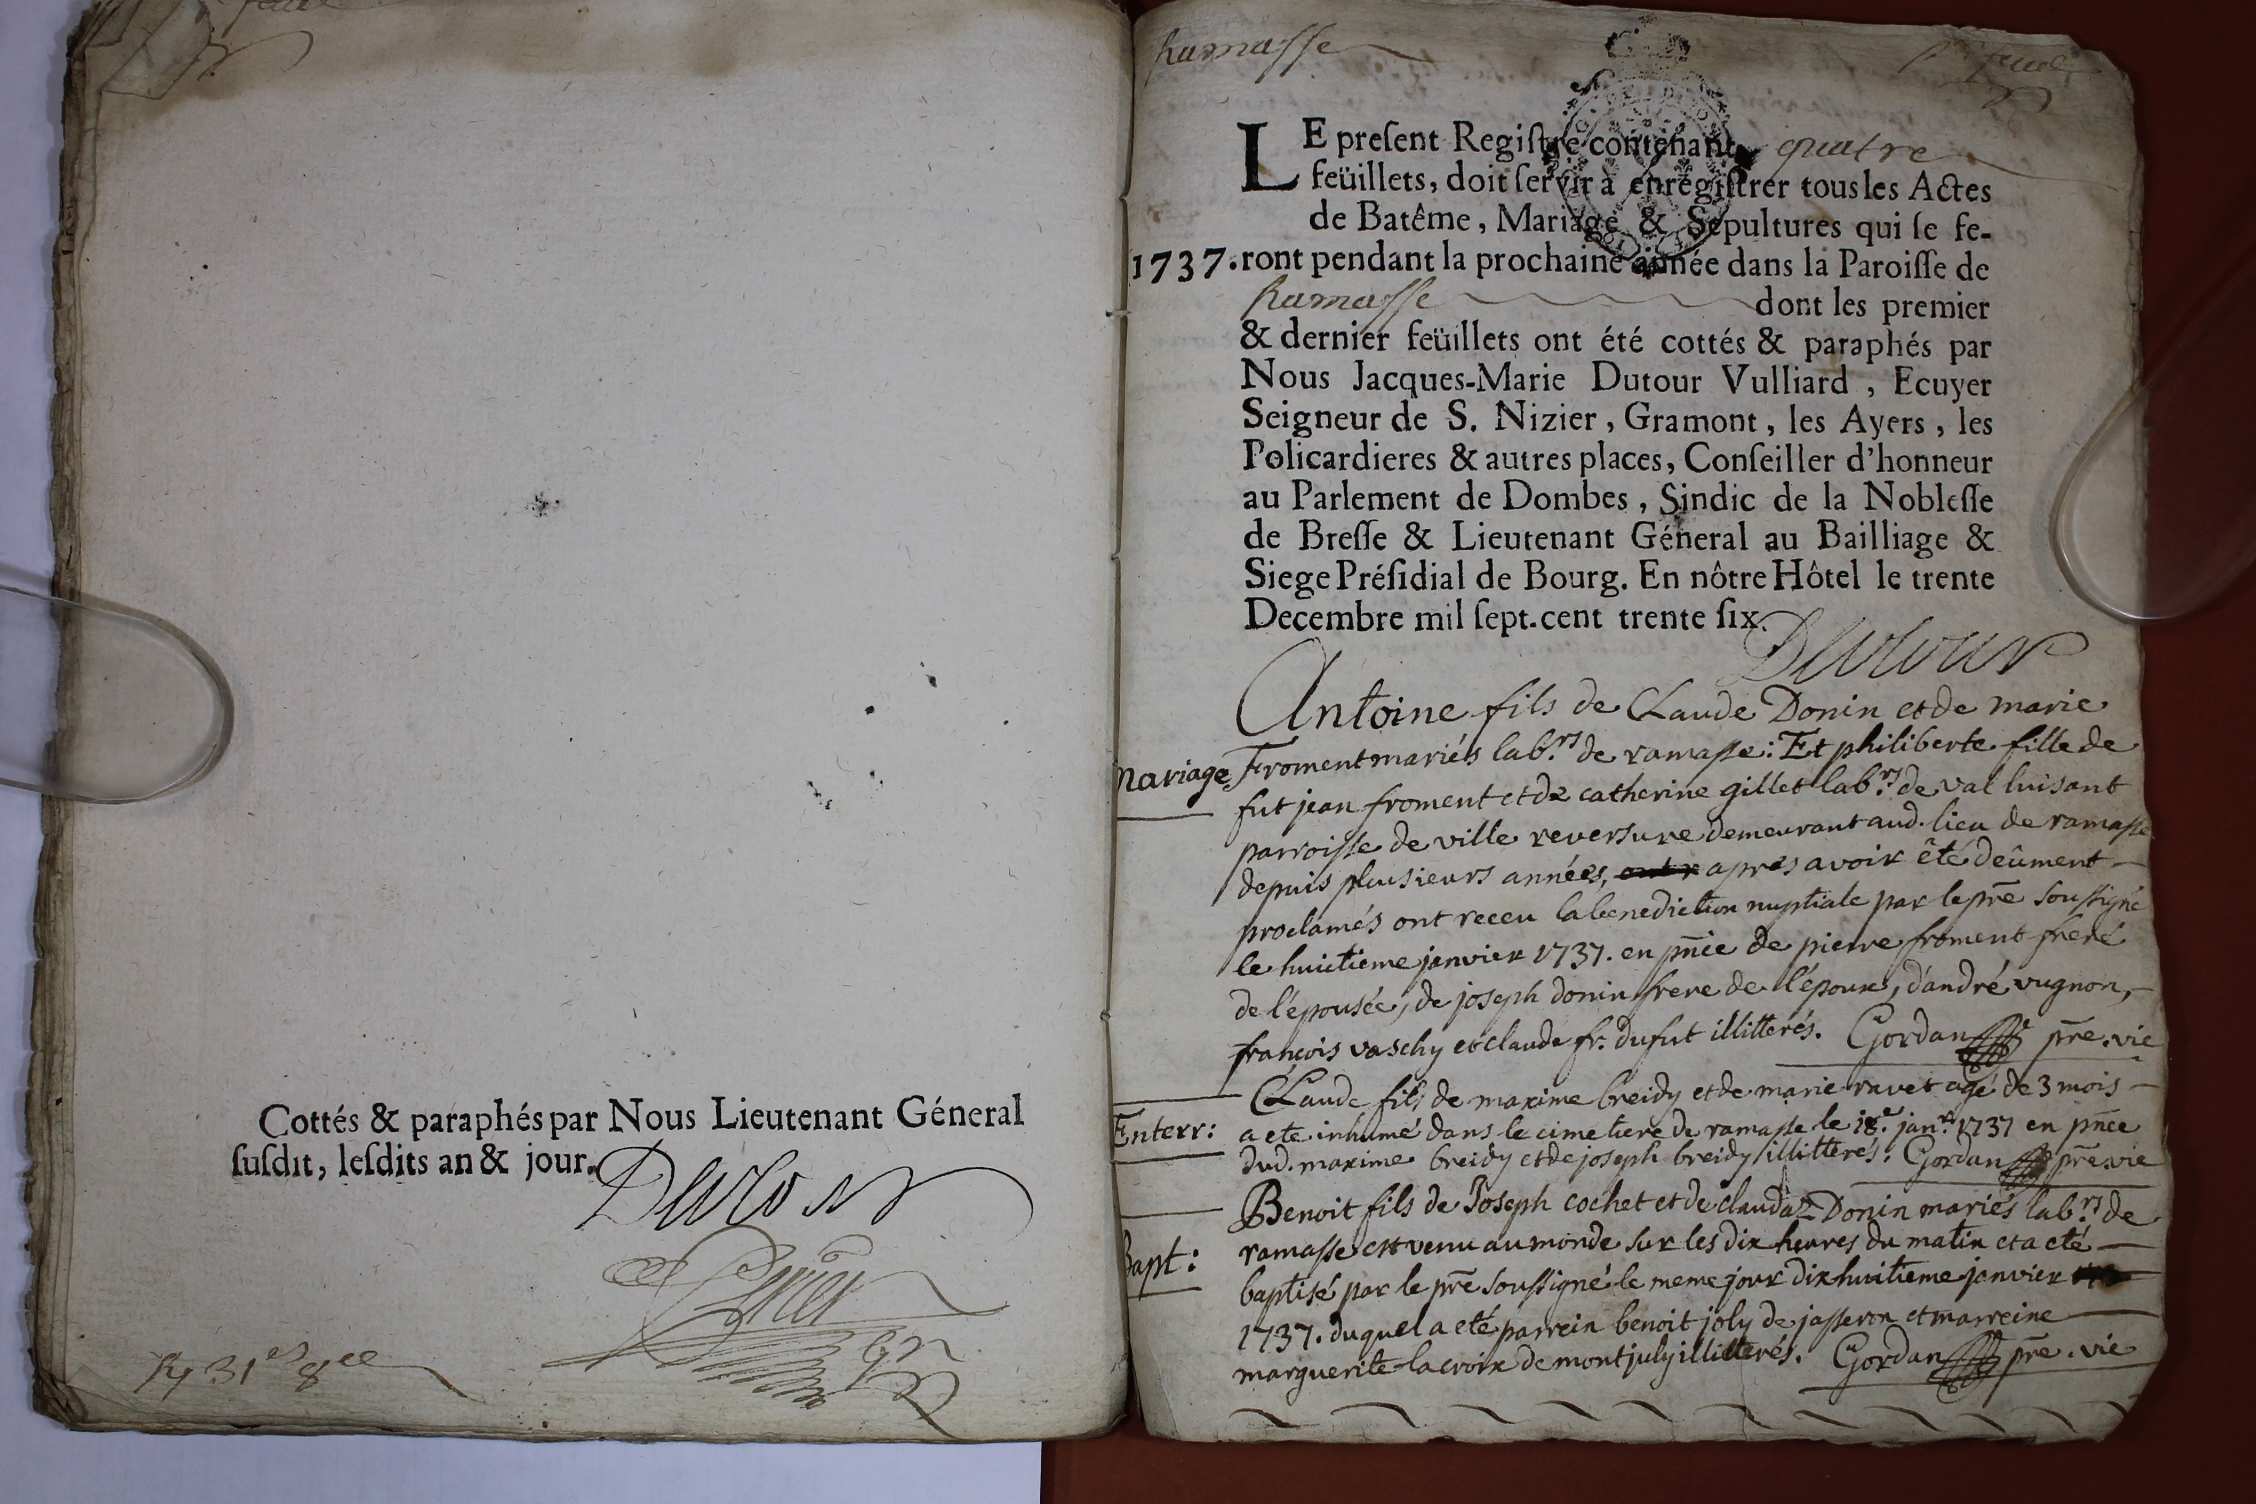 feuel
Cottés & paraphés par Nous Lieutenant Géneral
ſuſdit, leſdits an & jour.
Dutour
Ramasse
feuel
LE preſent Regiſtre contenant quatre
feüillets, doit ſervir à enregiſtrer tous les Actes
de Batême, Mariage & Sepultures qui ſe fe-
1737. ront pendant la prochaine année dans la Paroiſſe de
Ramasse dont les premier
& dernier feüillets ont été cottés & paraphés par
Nous Jacques-Marie Dutour Vulliard, Ecuyer
Seigneur de S. Nizier, Gramont, les Ayers, les
Policardieres & autres places, Conſeiller d'honneur
au Parlement de Dombes, Sindic de la Nobleſſe
de Breſſe & Lieutenant Géneral au Bailliage &
Siege Préſidial de Bourg. En nôtre Hôtel le trente
Decembre mil ſept-cent trente ſix.
Dutour
Antoine fils de Claude Donin et de marie
Mariage Froment mariés lab.rs de ramasse: Et philiberte fille de
fut jean froment et de catherine gillet lab.rs de val luisant
parroisse de ville reversure demeurant aud. lieu de ramasse
depuis plusieurs années, apres avoir été deûment
proclamés ont receu la benediction nuptiale par le pr̄e soussigné
le huictieme janvier 1737. en pn̄ce de pierre froment frere
de l'épousée, de joseph donin frere de l'époux, d'andré vugnon,
françois vaschy et claude fr. dufut illitterés. Gordan pr̄e. vic
Claude fils de maxime breidy et de marie ravet agé de 3 mois
Enterr: a ete inhumé dans le cimetiere de ramasse le 18.e janr. 1737 en pn̄ce
dud. maxime breidy et de joseph breidy illitterés. Gordan pr̄e vic
Benoit fils de Joseph cochet et de claudaz Donin mariés lab.rs de
Bapt: ramasse est venu au monde sur les dix heures du matin et a eté
baptisé par le pr̄e soussigné le meme jour dixhuitieme janvier
1737. duquel a eté parrein benoit joly de jasseron et marreine
marguerite lacroix de montjuly illitterés. Gordan pr̄e. vic